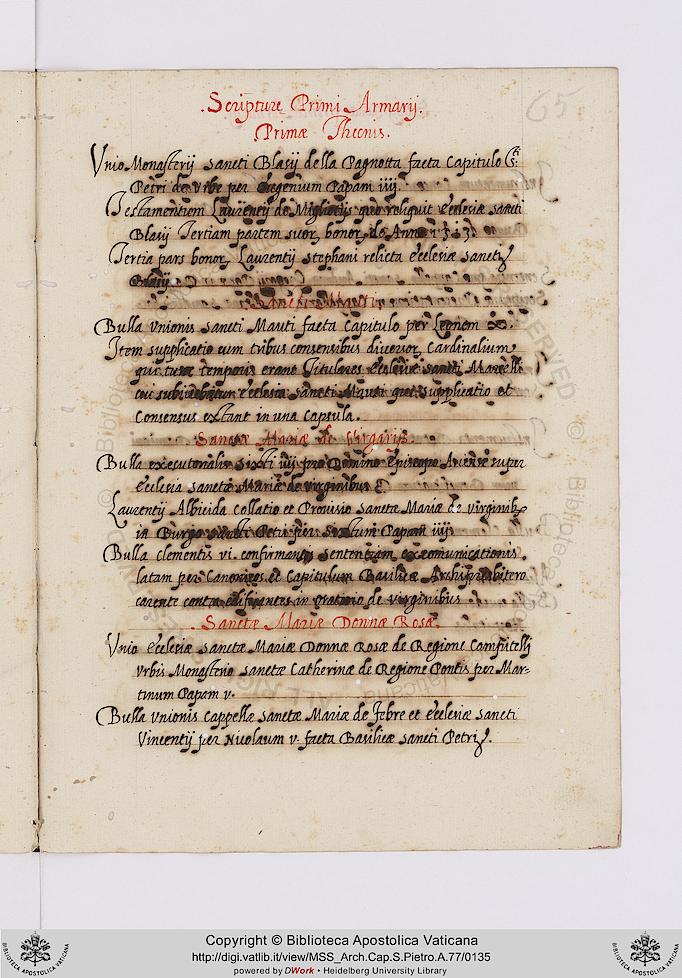 65
.Scripturæ Primi Armarij.
.Primæ Thecnis.
Vnio Monasterij sancti Blasij della Pagnotta facta Capitulo Sti
Petri de Vrbe per Eugenium Papam iiij.
Testamentum Laurentij de quo reliquit ecclesiæ sancti
Blasij Tertiam partem suor bonor de Anno
Tertia pars bonor Laurentij stephani relicta ecclesiæ sancti
Blasij.
Sancti Mauti
Bulla vnionis sancti Mauti facta Capitulo per Leonem
Item supplicatio cum tribus consensibus diversor Cardinalium
qui tunc temporis erant Titulares ecclesiæ sancti Marcelli
cui subiicebatur ecclesia sancti Mauti que supplicatio et
Consensus extant in una Capsula.
Sanctæ Mariæ de Virgarijs.
Bulla executorialis Sixti iiij pro Domino Episcopo super
ecclesia sanctæ Mariæ de virginibus
Laurentij Collatio et Provisio sanctæ Mariæ de virginib
in Burgo sancti Petri per Sixtum Papam iiij.
Bulla clementis vi. confirmantis sententiam excomunicationis
latam per Canonicos et Capitulum Basilicæ Archipresbitero
carente contra edificantes in oratorio de virginibus
Sanctæ Mariæ Donnæ Rosæ.
Vnio ecclesiæ sanctæ Mariæ Donnæ Rosæ de Regione
Vrbis Monasterio sanctæ Catherinæ de Regione Pontis per Mar-
tinum Papam v.
Bulla vnionis Cappellæ sanctæ Mariæ de Febre et ecclesiæ sancti
Vincentij per Nicolaum v. facta Basilicæ sancti Petri.
Copyright © Biblioteca Apostolica Vaticana
http://digi.vatlib.it/view/MSS_Arch.Cap.S.Pietro.A.77/0135
powered by DWork • Heidelberg University Library